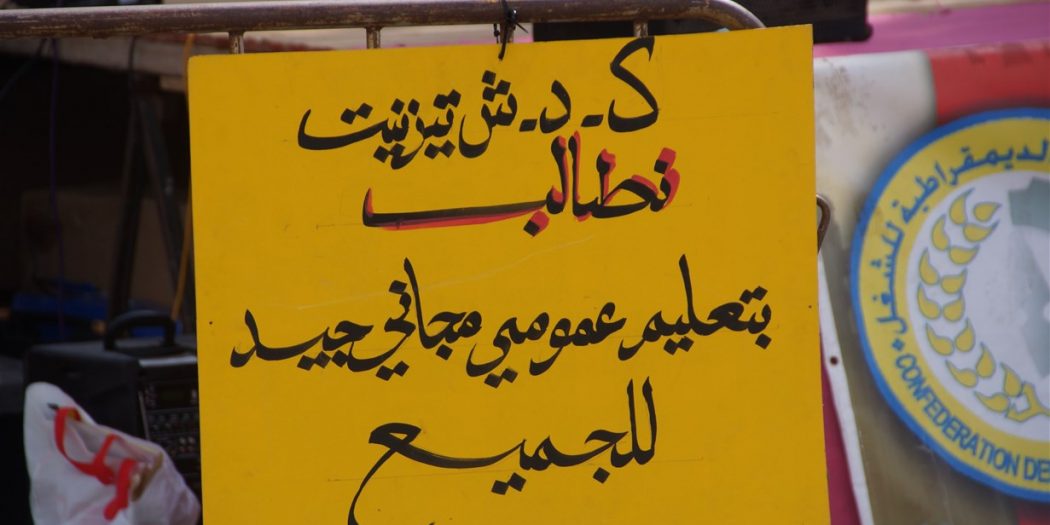 ك.د.ش تيزنيت
نطالب
بتعليم عمومي مجاني جيد
للجميع
الديمقراطية للشغل
CONFEDERATION DE